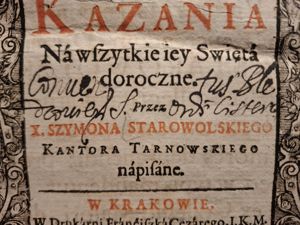 KAZANIA
Ná wszytkie iey Swiętá
doroczne.
Przez
X. SZYMONA STAROWOLSKIEGO
KANTORA TARNOWSKIEGO
nápisáne.
W KRAKOWIE.
W Drukárni Fránćiszká Cezárego, J. K. M.